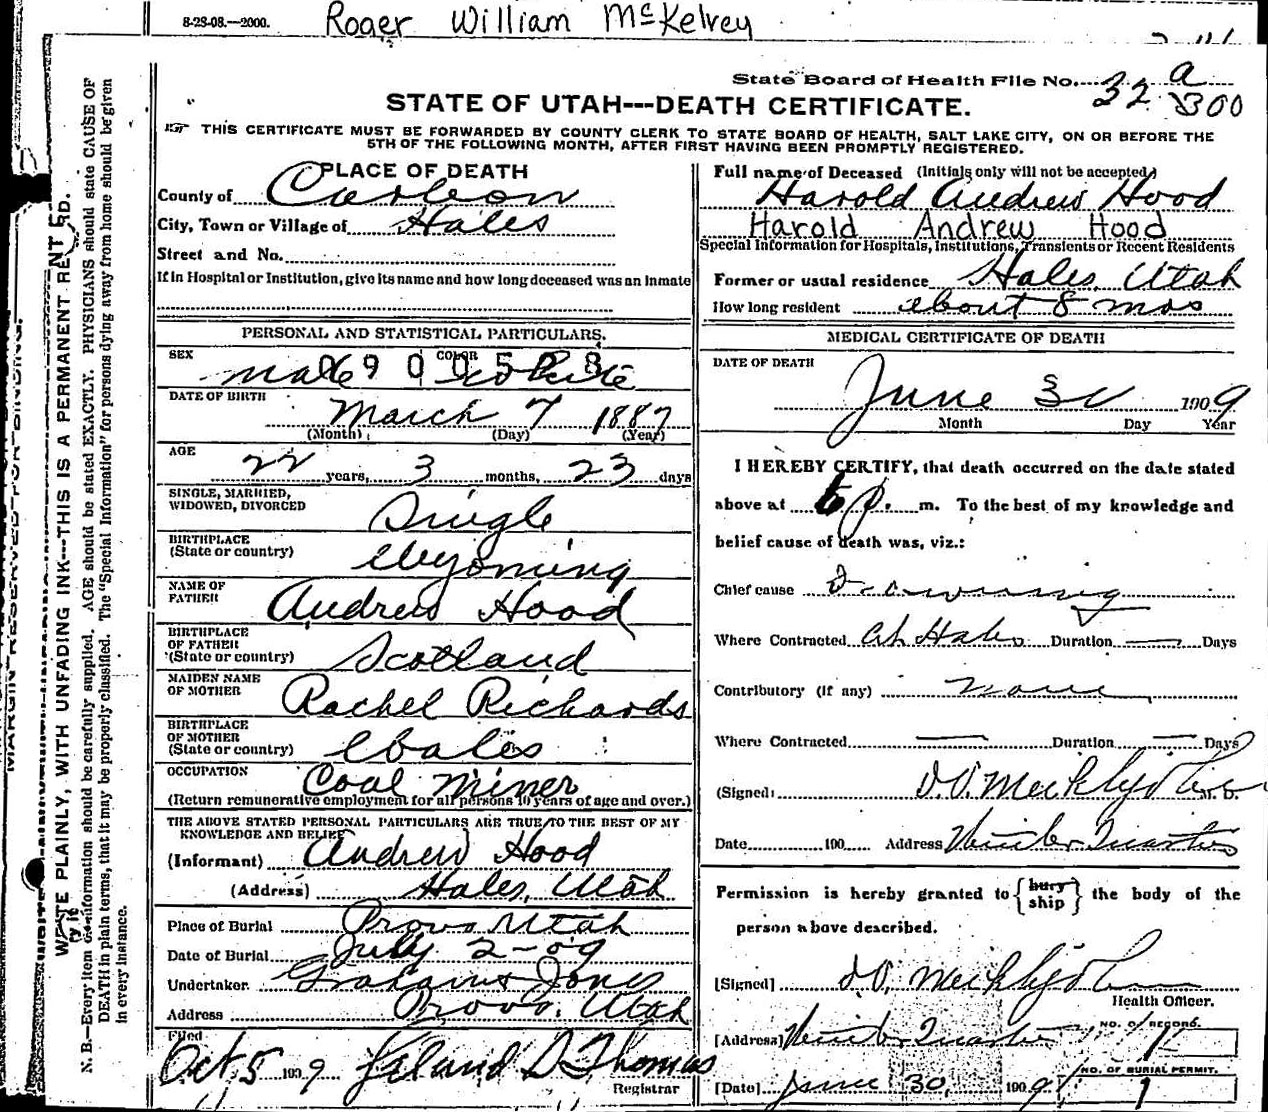 8-28-08.—2000.
Roger William McKelvey
State Board of Health File No. 32 a 300
STATE OF UTAH---DEATH CERTIFICATE.
THIS CERTIFICATE MUST BE FORWARDED BY COUNTY CLERK TO STATE BOARD OF HEALTH, SALT LAKE CITY, ON OR BEFORE THE
5TH OF THE FOLLOWING MONTH, AFTER FIRST HAVING BEEN PROMPTLY REGISTERED.
PLACE OF DEATH
County of Carbon
City, Town or Village of Hales
Street and No.
If in Hospital or Institution, give its name and how long deceased was an inmate
PERSONAL AND STATISTICAL PARTICULARS.
SEX male COLOR white
0690 0508
DATE OF BIRTH
March 7 1887
(Month) (Day) (Year)
AGE
22 years, 3 months, 23 days
SINGLE, MARRIED,
WIDOWED, DIVORCED Single
BIRTHPLACE
(State or country) Wyoming
NAME OF
FATHER Andrew Hood
BIRTHPLACE
OF FATHER
(State or country) Scotland
MAIDEN NAME
OF MOTHER Rachel Richards
BIRTHPLACE
OF MOTHER
(State or country) Wales
OCCUPATION Coal Miner
(Return remunerative employment for all persons 10 years of age and over.)
THE ABOVE STATED PERSONAL PARTICULARS ARE TRUE TO THE BEST OF MY
KNOWLEDGE AND BELIEF
(Informant) Andrew Hood
(Address) Hales, Utah
Place of Burial Provo Utah
Date of Burial July 2-09
Undertaker Jones
Address Provo, Utah
Filed
Oct. 5 1909 Leland D Thomas
Registrar
Full name of Deceased (Initials only will not be accepted)
Harold Andrew Hood
Harold Andrew Hood
Special Information for Hospitals, Institutions, Transients or Recent Residents
Former or usual residence Hales, Utah
How long resident about 8 mos
MEDICAL CERTIFICATE OF DEATH
DATE OF DEATH
June 30 1909
Month Day Year
I HEREBY CERTIFY, that death occurred on the date stated
above at 6 p. m. To the best of my knowledge and
belief cause of death was, viz.:
Chief cause Drowning
Where Contracted At Hales Duration — Days
Contributory (if any) none
Where Contracted — Duration — Days
(Signed)
Date 190 Address Winter Quarters
Permission is hereby granted to {bury ship} the body of the
person above described.
[Signed]
Health Officer.
[Address] Winter Quarters
NO. OF RECORD.
1
[Date] June 30, 1909
NO. OF BURIAL PERMIT.
1
MARGIN RESERVED FOR BINDING.
WRITE PLAINLY, WITH UNFADING INK---THIS IS A PERMANENT RECORD.
N. B.—Every item of information should be carefully supplied. AGE should be stated EXACTLY. PHYSICIANS should state CAUSE OF
DEATH in plain terms, that it may be properly classified. The "Special Information" for persons dying away from home should be given
in every instance.